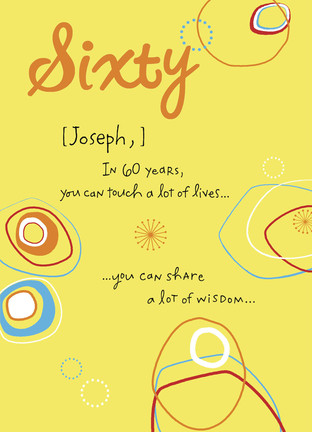 Sixty
[Joseph,]
In 60 years,
you can touch a lot of lives...
...you can share
a lot of wisdom...